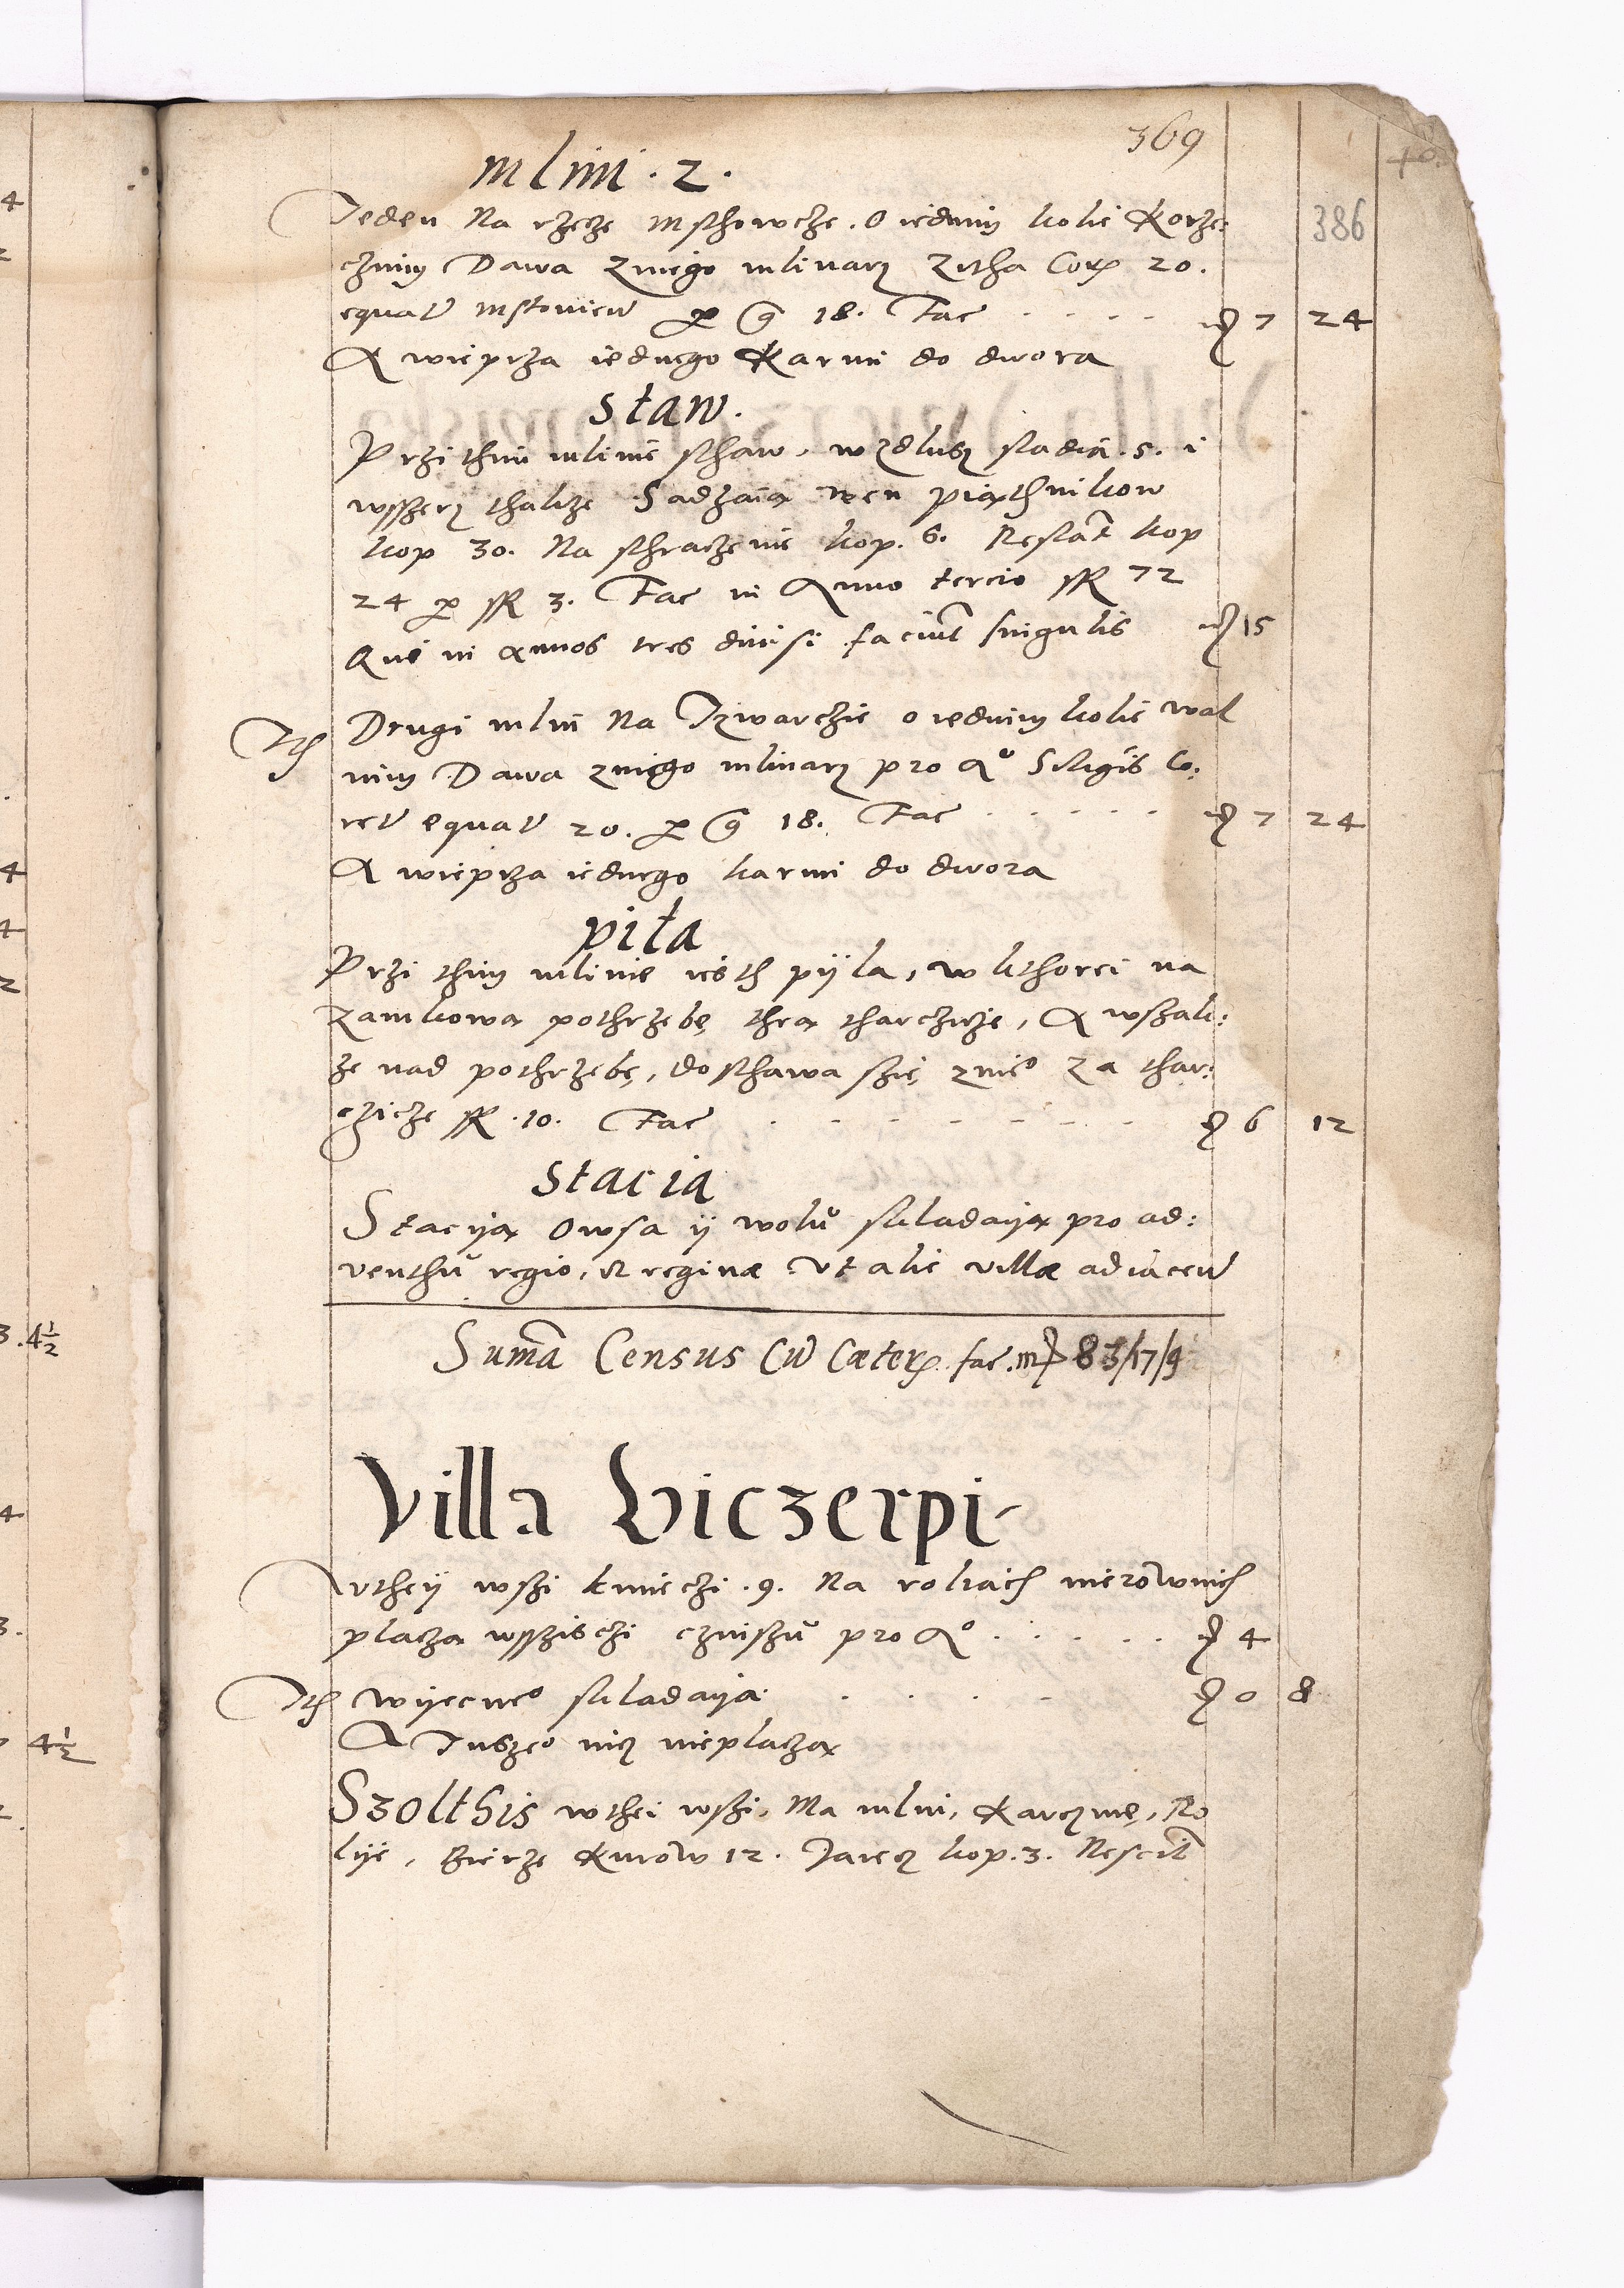 369
386
mlini . 2 .
Jeden Na rzecze Msthowcze . O iednim kolie Korze:
cznim Dawa zniego mlinarz Zitha Cor 20.
equat mstovien per g 18. Fac . . . . m 7 24
A wieprza iednego Karmi do dwora
staw .
Przi thim mlinie sthaw . wzdlusz stadia . 5 . i
wsszerz thakze Sadzaia wen piathnikow
kop 30. Na sthraczenie kop . 6. Restat kop
24 per sR 3. Fac in Anno tercio sR 72
Qui in annos tres divisi faciut singulis m 15
Ith Drugi mlin Na Izwarczie o iednim kolie wal
nim Dawa zniego mlinarz pro Ao Siligis Co:
ret equat 20. per g 18. Fac . . . . . m 7 24
A wieprza iednego karmi do dwora
piła
Przi thim mlinie iesth pijla , w kthorei na
zamkowa pothrzebę thra tharczicze , A wszak:
ze nad pothrzebę , dosthawa szię znieo za thar:
czicze sR . 10. Fac . . . . . . . . m 6 12
stacia
Stacija Owsa ij wolu skladaija pro ad:
venthu regio , et reginæ vt alie villæ adiacen
Suma Census Cu Cæter fac . m 83/17/9
Villa Kiczerpi
A vtheij wszi kmieczi . 9. Na roliach nierownich
placza wsszisczi czinszu pro Ao . . . . . m 4
Ith wijecneo skladaija . . . . m 0 8
A Inszeo nicz nieplacza
Szolthis wthei wszi . Ma mlin , Karczmę , Ro
lije , Bierze Kurow 12. Jarecz kop . 3. Nescit